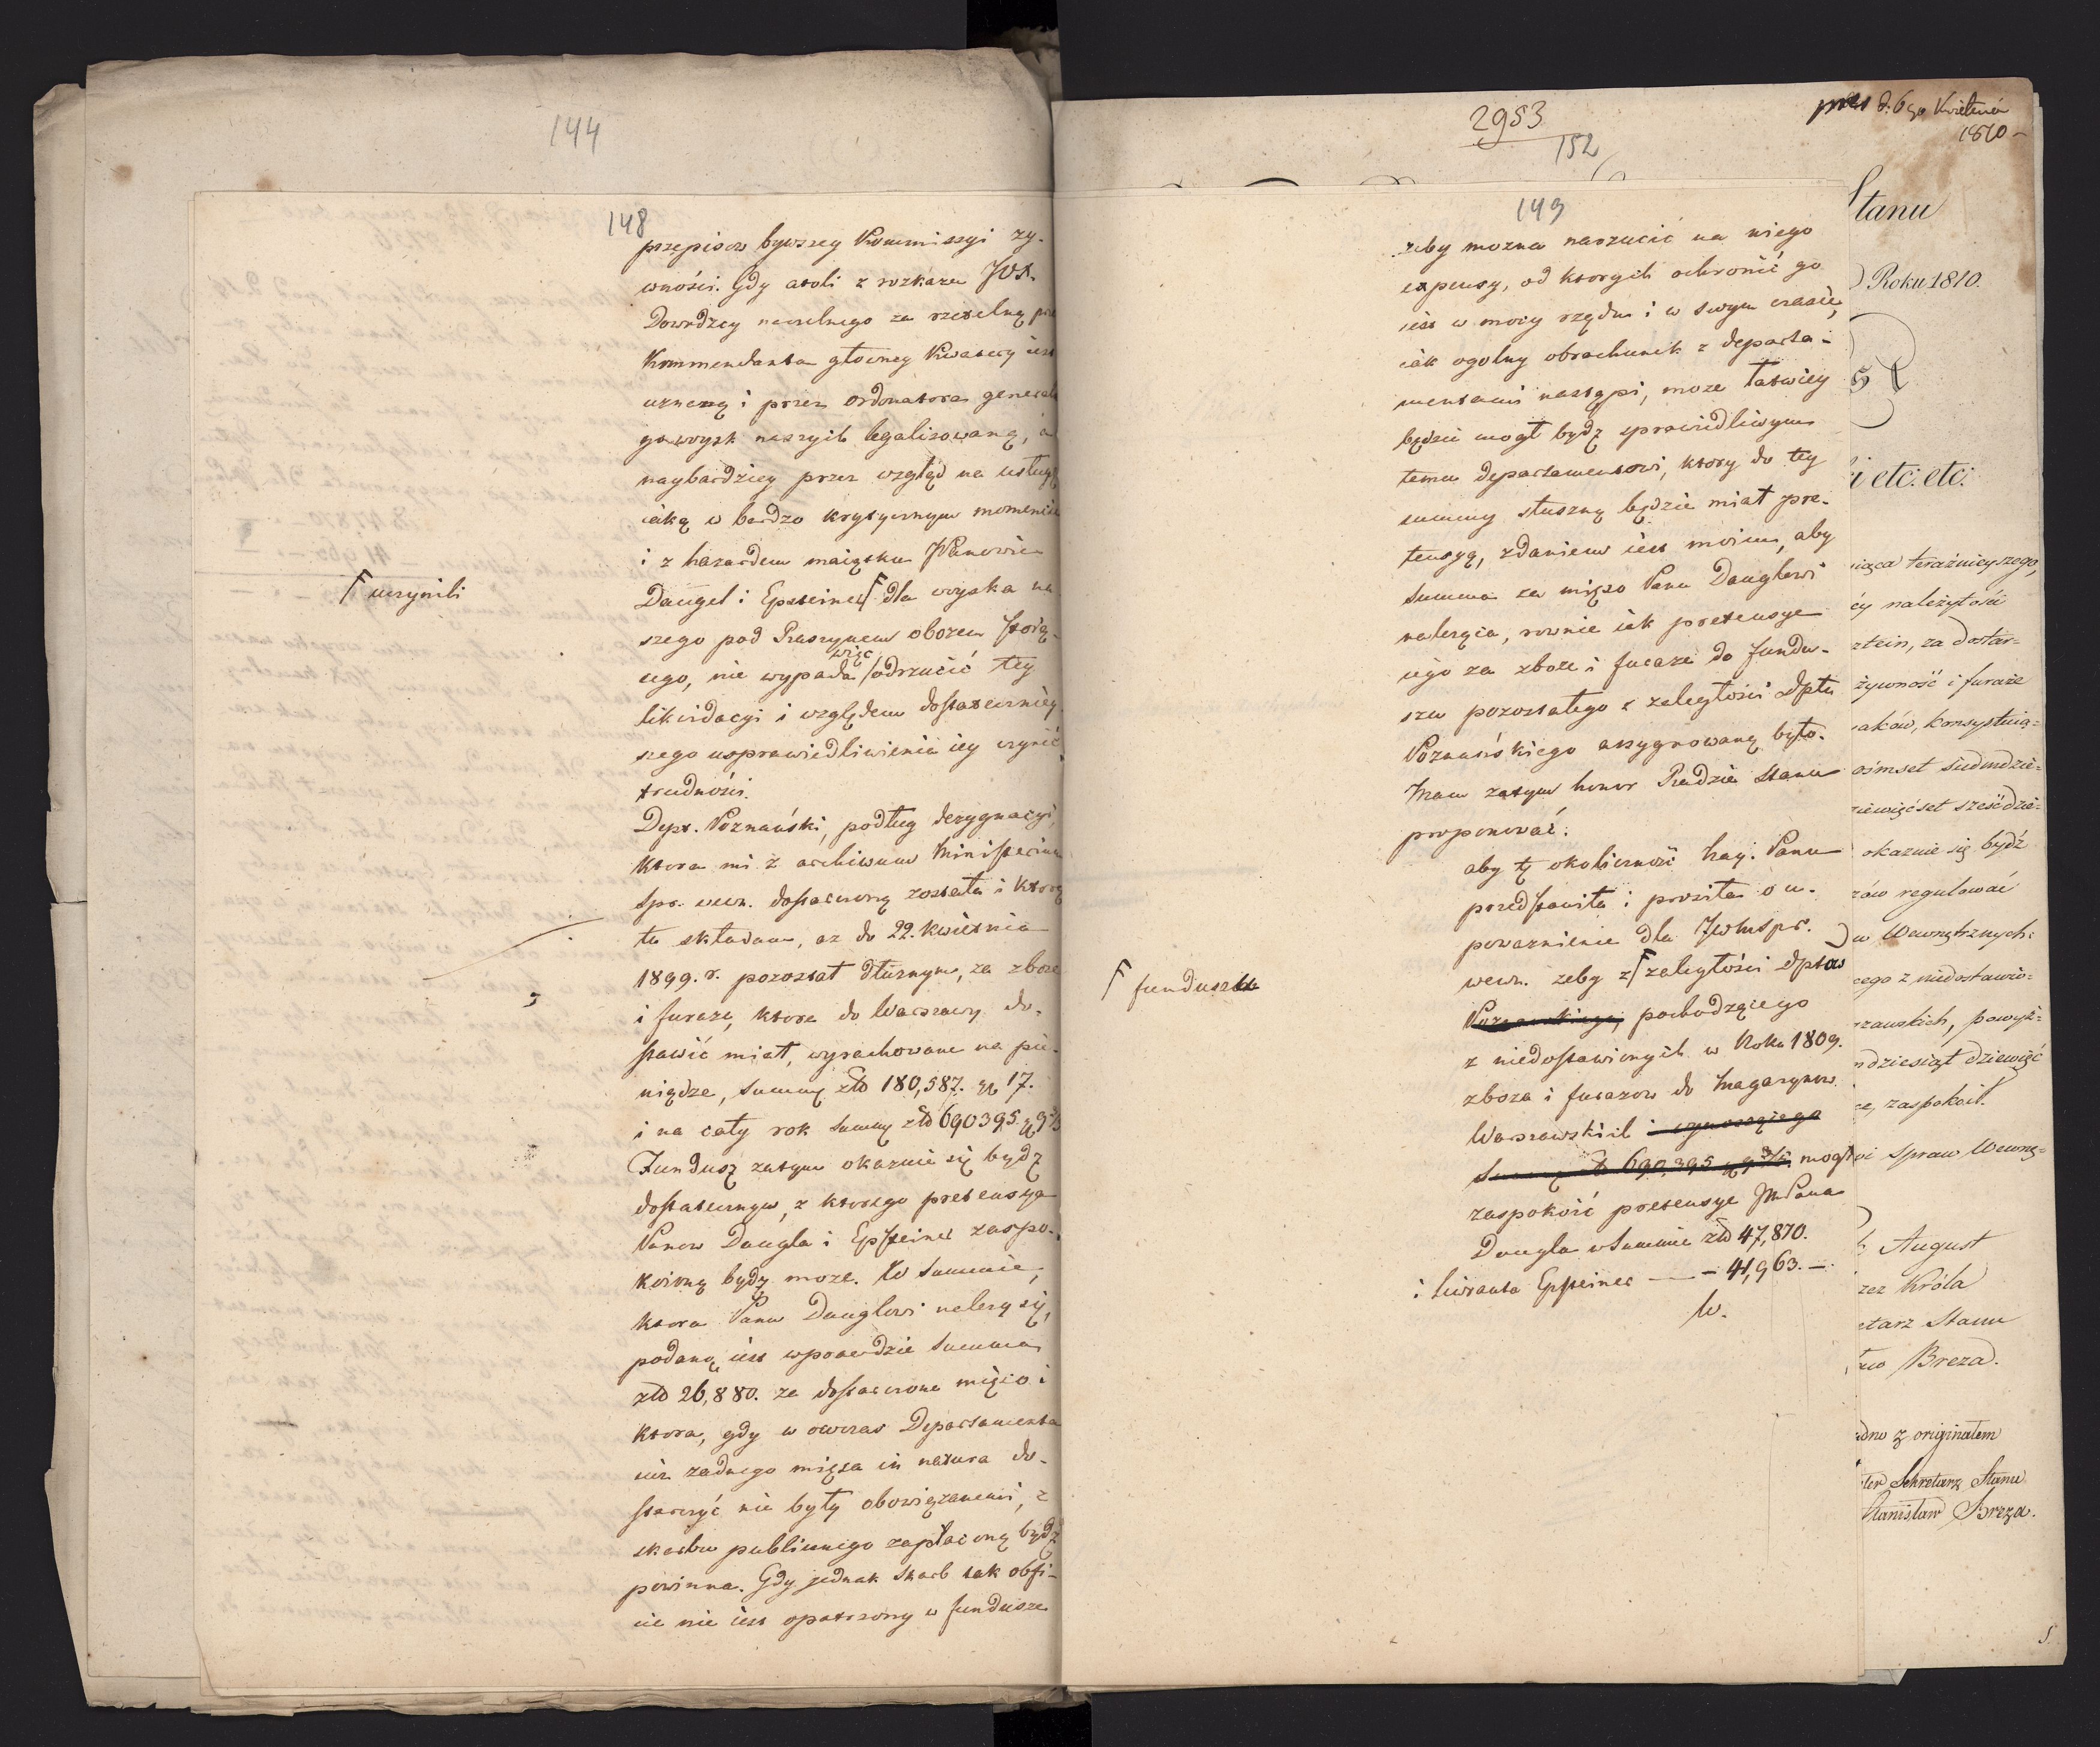 144
148
przepisow bywszey Kommissyi ży-
wności. Gdy atoli z rozkazu JW.
Dowodzcy naczelnego za rzetelną prze
Kommendanta głowney Kwatery iest
uznaną i przez Ordonatora generaln
go woysk naszych legalizowaną, a
naybardziey przez wzgląd na usługę
iaką w bardzo krytycznym momencie
i z hazardem maiątku JPanowie
Daugel i Epsteiner F dla woyska na
F uczynili
szego pod Raszynem obozem stoią-
cego, nie wypada więc odrzucić tey
likwidacyi i względem dostateczniey
szego usprawiedliwienia iey czynić
trudności.
Dept. Poznański, podług dezygnacyi,
ktora mi z archiwum Ministerium
Spr. wewn. dostarczoną została i ktorą
tu składam, az do 22. Kwietnia
1809. r. pozostał dłużnym, za zboże
i furaże, ktore do Warszawy do-
stawić miał, wyrachowane na pie-
niądze, summę złd 180,587. gr 17.
i na cały rok summę złd 690395 gr 9 3/5
Fundusz zatym okazuie się bydz
dostatecznym, z ktorego pretensya
Panow Daugla i Epsteiner zaspo-
koioną bydz moze. W summie,
ktora Panu Dauglowi należy się,
podaną iest wprawdzie summa
złd 26,880. za dostarczone mięso i
ktora, gdy w owczas Departamenta
iuż żadnego mięsa in natura do-
starczyć nie były obowiązanemi, z
skarbu publicznego zapłaconą bydz
powinna. Gdy jednak Skarb tak obfi-
cie nie iest opatrzony w fundusze
2953
152
149
żeby mozna narzucić na niego
expensy, od ktorych ochronić go
iest w mocy rządu i w swym czasie,
iak ogolny obrachunek z departa-
mentami nastąpi, moze łatwiey
będzie mogł bydz sprawiedliwym
temu departamentowi, ktory do tey
summy słuszną będzie miał pre-
tensyą, zdaniem iest moim, aby
summa za mięso Panu Dauglowi
należąca, rownie iak pretensye
iego za zboże i furaże do fundu-
szu pozostałego z zaległości Dptu
Poznańskiego assygnowaną była.
Mam zatym honor Radzie Stanu
proponować:
aby tę okoliczność Nay. Panu
przedstawiła i prosiła o u-
poważnienie dla JWMspr.
wewn. żeby z F zaległości Dptow
F funduszu
Poznańskiego, pochodzącego
z niedostawionych w Roku 1809.
zboża i furażow do Magazynow
Warszawskich i wynoszącego
Summę zł 690,395 gr 9 3/5 mogł
zaspokoić pretensye JmPana
Daugla w Summie złd 47,870.
i liwranta Epsteiner — — 41,963. —
W.
pres d. 6go Kwietnia
1810 -
Stanu
Roku 1810.
i etc: etc:
iąca teraźnieyszego,
cy należytości
ztein, za dostar=
żywność i furaże
saków, konsystuią=
ośmset siedmdzie=
ziewięćset sześćdzie=
okazuie się bydź
zów regulować
w Wewnętrznych:
cego z niedostawio=
rzawskich, powyż=
mdziesiąt dziewięć
ce, zaspokoił.
oi Spraw Wewnę=
August
zez Króla
etarz Stanu
Breza.
odno z originałem
ster Sekretarz Stanu
Stanisław Breza.